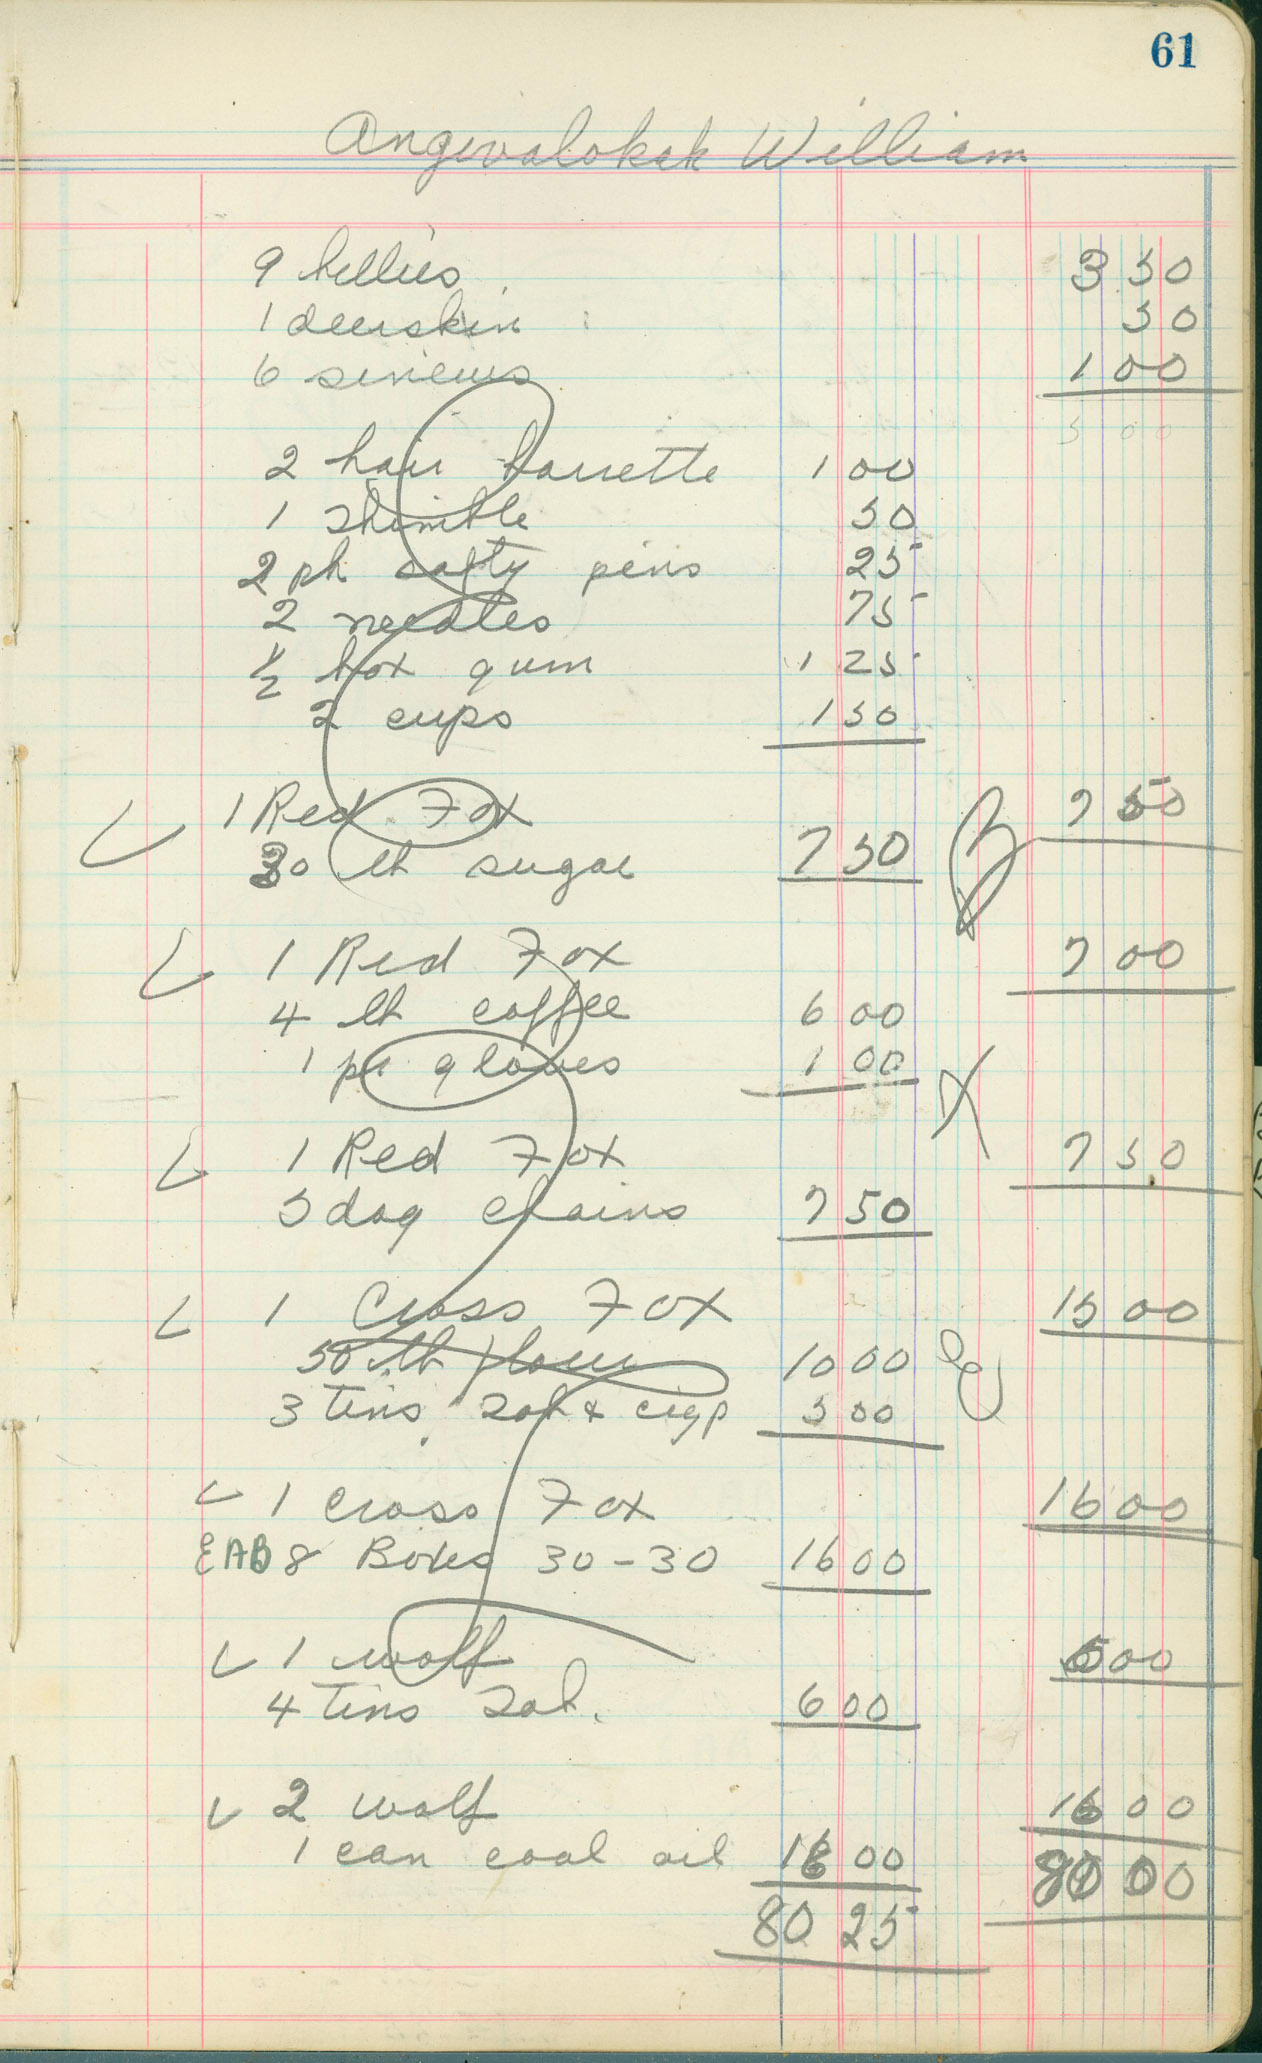 61
Angivalokak William
9 bellies 3 50
1 deerskin 50
6 sinews 1 00
5 00
2 hair barrette 1 00
1 thimble 50
2 pk safty pins 25
2 needles 75
1/2 box gum 1 25
2 cups 1 50
1 Red Fox 7 50
30 lb sugar 7 50
1 Red Fox 7 00
4 lb coffee 6 00
1 pr gloves 1 00
1 Red Fox 7 50
5 dog chains 7 50
1 Cross Fox 15 00
50 lb flour 10 00
3 Tins Tob & cigp 5 00
1 Cross Fox 16 00
EAB 8 Boxes 30-30 16 00
1 wolf 6 00
4 Tins Tob. 6 00
2 wolf 16 00
1 can coal oil 16 00 80 00
80 25